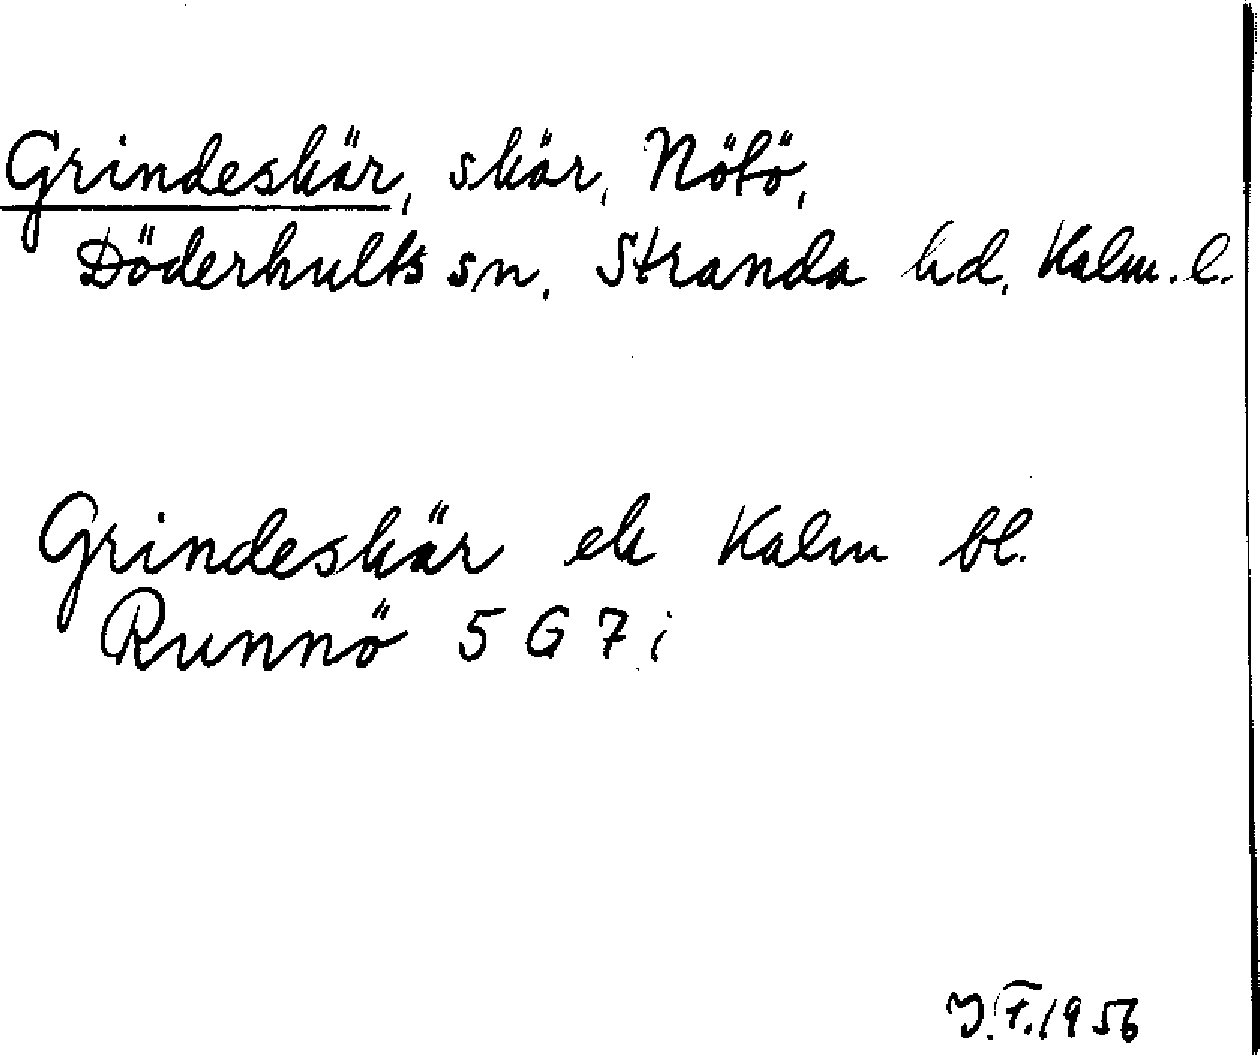 Grindeskär, skär, Nötö,
Döderhults sn, Stranda hd, Kalm. l.
Grindeskär ek Kalm bl.
Runnö 5 G 7 i
J.F. 1956